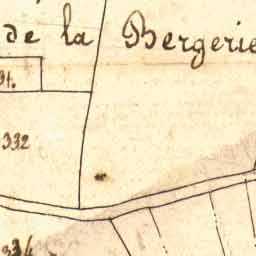 de la Bergerie
91.
332
334